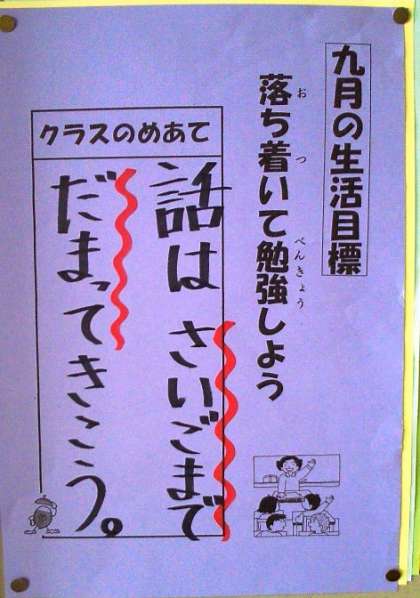 九月の生活目標
落ち着いて勉強しよう
お
つ
べんきょう
クラスのめあて
話は さいごまで
だまってきこう。